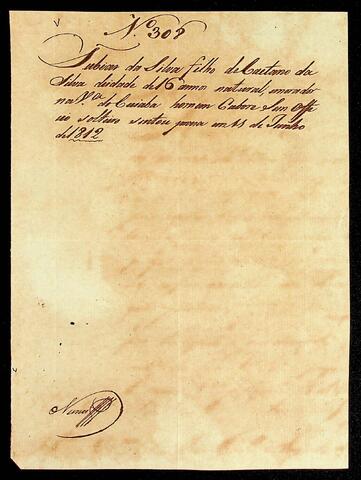 N.º 309
da Silva filho de Caetano da
Silva deidade de 16 annos natural, morador
na V.ª do Cuiaba homem Cabore Sem Offi
cio solteiro sentou praca em 11 de Junho
de 1812
Nunes